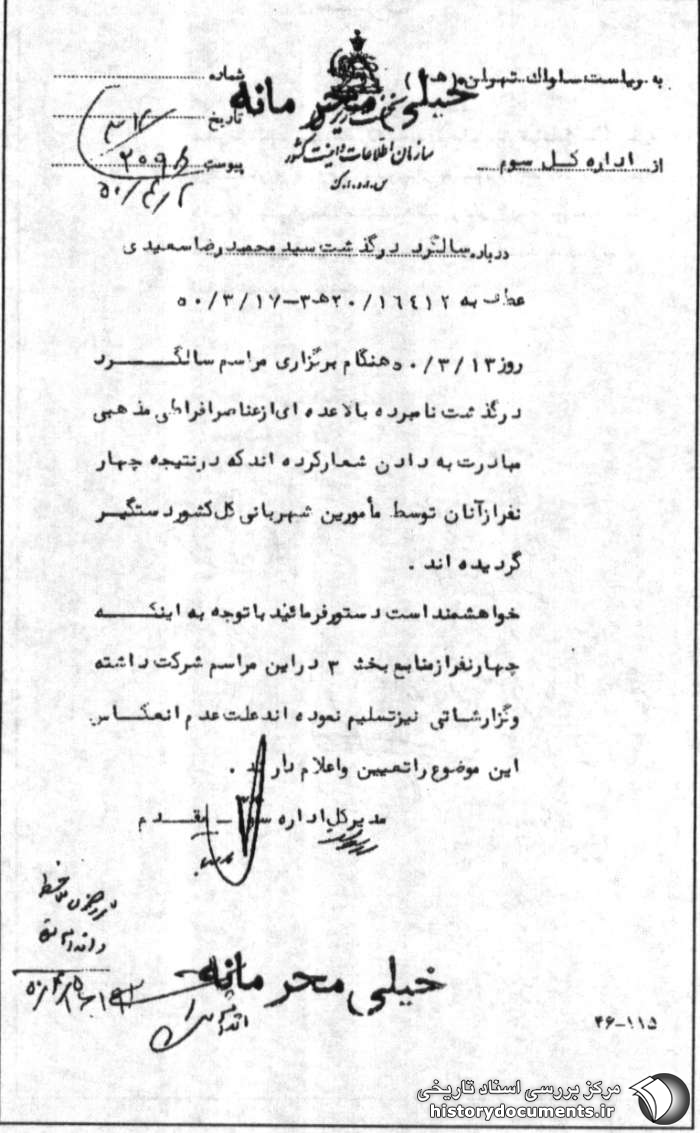 به ریاست ساواک تهران (ه‍ ۳)
شماره
خیلی محرمانه
تاریخ
سازمان اطلاعات و امنیت کشور
از اداره کل سوم
پیوست
س.ا.و.ا.ک
۵۰/۴/۲
درباره سالگرد درگذشت سید محمدرضا سعیدی
عطف به ۲۰/۱۶۴۱۲ه‍۳-۵۰/۳/۱۷
روز ۵۰/۳/۱۳ هنگام برگزاری مراسم سالگرد
درگذشت نامبرده بالا عده ای از عناصر افراطی مذهبی
مبادرت به دادن شعار کرده اند که در نتیجه چهار
نفر از آنان توسط مأمورین شهربانی کل کشور دستگیر
گردیده اند .
خواهشمند است دستور فرمائید با توجه به اینکه
چهار نفر از منابع بخش ۳ در این مراسم شرکت داشته
و گزارشاتی نیز تسلیم نموده اند علت عدم انعکاس
این موضوع را تعیین و اعلام دارند .
مدیر کل اداره سوم - مقدم
خیلی محرمانه
۴۶-۱۱۵
مرکز بررسی اسناد تاریخی
historydocuments.ir